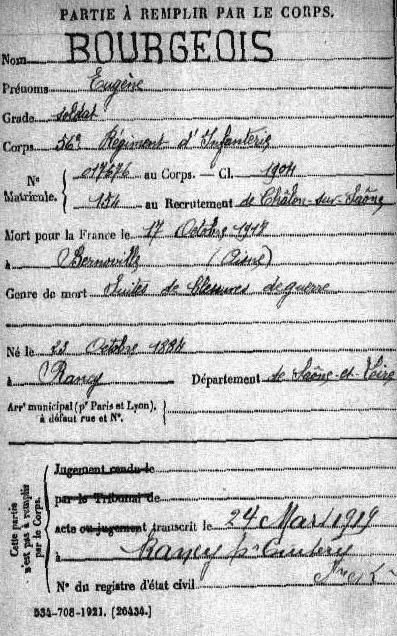 PARTIE À REMPLIR PAR LE CORPS.
Nom BOURGEOIS
Prénoms Eugène
Grade soldat
Corps 56e Régiment d'Infanterie
No Matricule. { 017676 au Corps. — Cl. 1904
154 au Recrutement de Châlon-sur-Saône
Mort pour la France le 17 Octobre 1918
à Bernoville (Aisne)
Genre de mort Suites de blessures de guerre
Né le 23 Octobre 1884
à Rancy Département de Saône-et-Loire
Arrt municipal (pr Paris et Lyon),
à défaut rue et No.
Cette partie n'est pas à remplir par le Corps.
Jugement rendu le
par le Tribunal de
acte ou jugement transcrit le 24 Mars 1919
à Rancy
No du registre d'état civil
534-708-1921. [26434.]